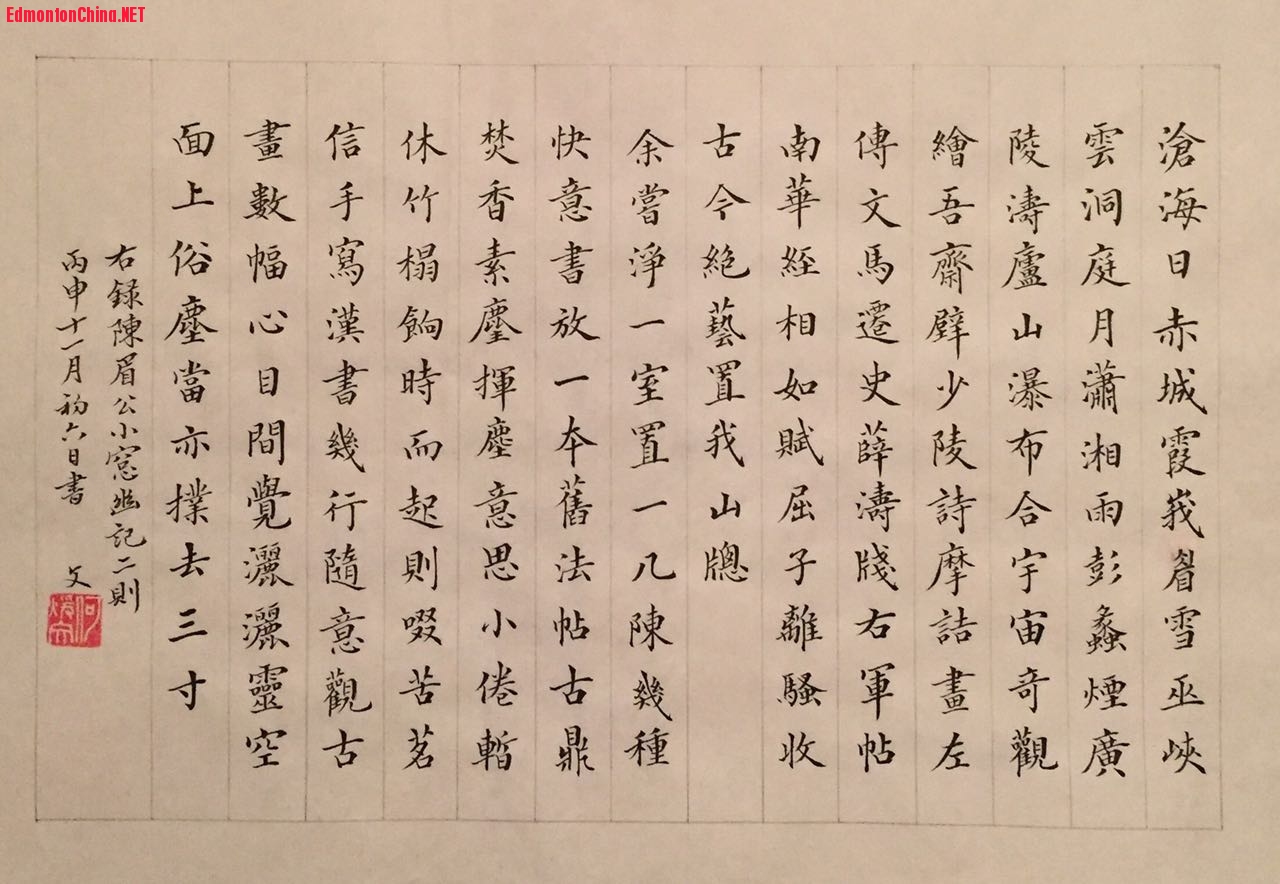 EdmontonChina.NET
滄海日赤城霞峩眉雪巫峽
雲洞庭月瀟湘雨彭蠡煙廣
陵濤廬山瀑布合宇宙奇觀
繪吾齋壁少陵詩摩詰畫左
傳文馬遷史薛濤牋右軍帖
南華經相如賦屈子離騷收
古今絕藝置我山牕
余嘗淨一室置一几陳幾種
快意書放一本舊法帖古鼎
焚香素麈揮塵意思小倦暫
休竹榻餉時而起則啜苦茗
信手寫漢書幾行隨意觀古
畫數幅心目間覺灑灑靈空
面上俗塵當亦撲去三寸
右錄陳眉公小窓幽記二則
丙申十一月初六日書 文